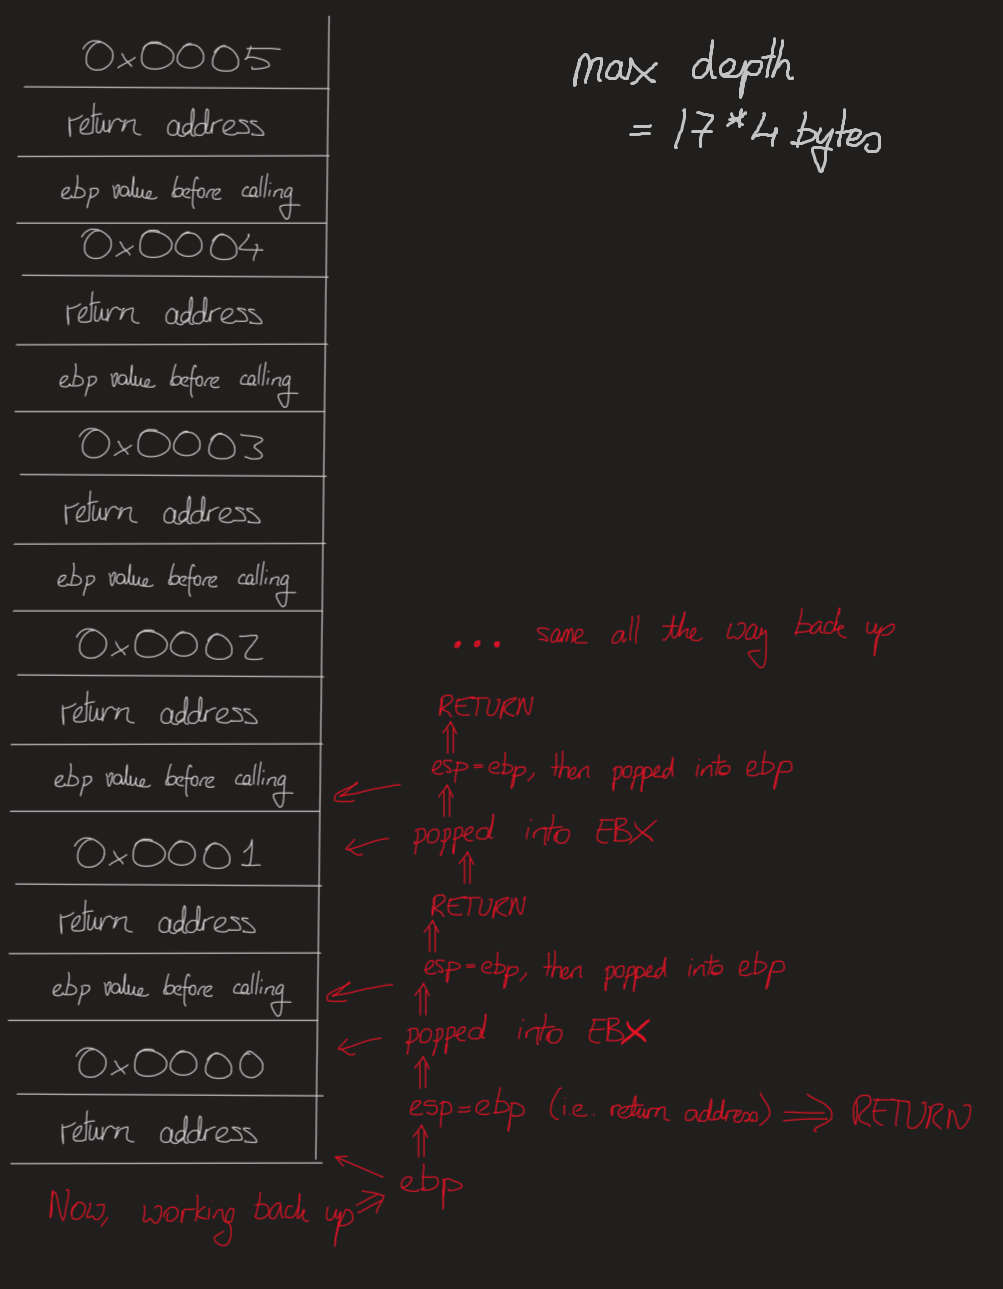 0x0005
return address
ebp value before calling
0x0004
return address
ebp value before calling
0x0003
return address
ebp value before calling
0x0002
return address
ebp value before calling
0x0001
return address
ebp value before calling
0x0000
return address
max depth
= 17*4 bytes
... same all the way back up
RETURN
⇑
esp=ebp, then popped into ebp
⇑
← popped into EBX
⇑
RETURN
⇑
esp=ebp, then popped into ebp
⇑
← popped into EBX
⇑
esp=ebp (i.e. return address) ⇒ RETURN
⇑
ebp
Now, working back up ⇒